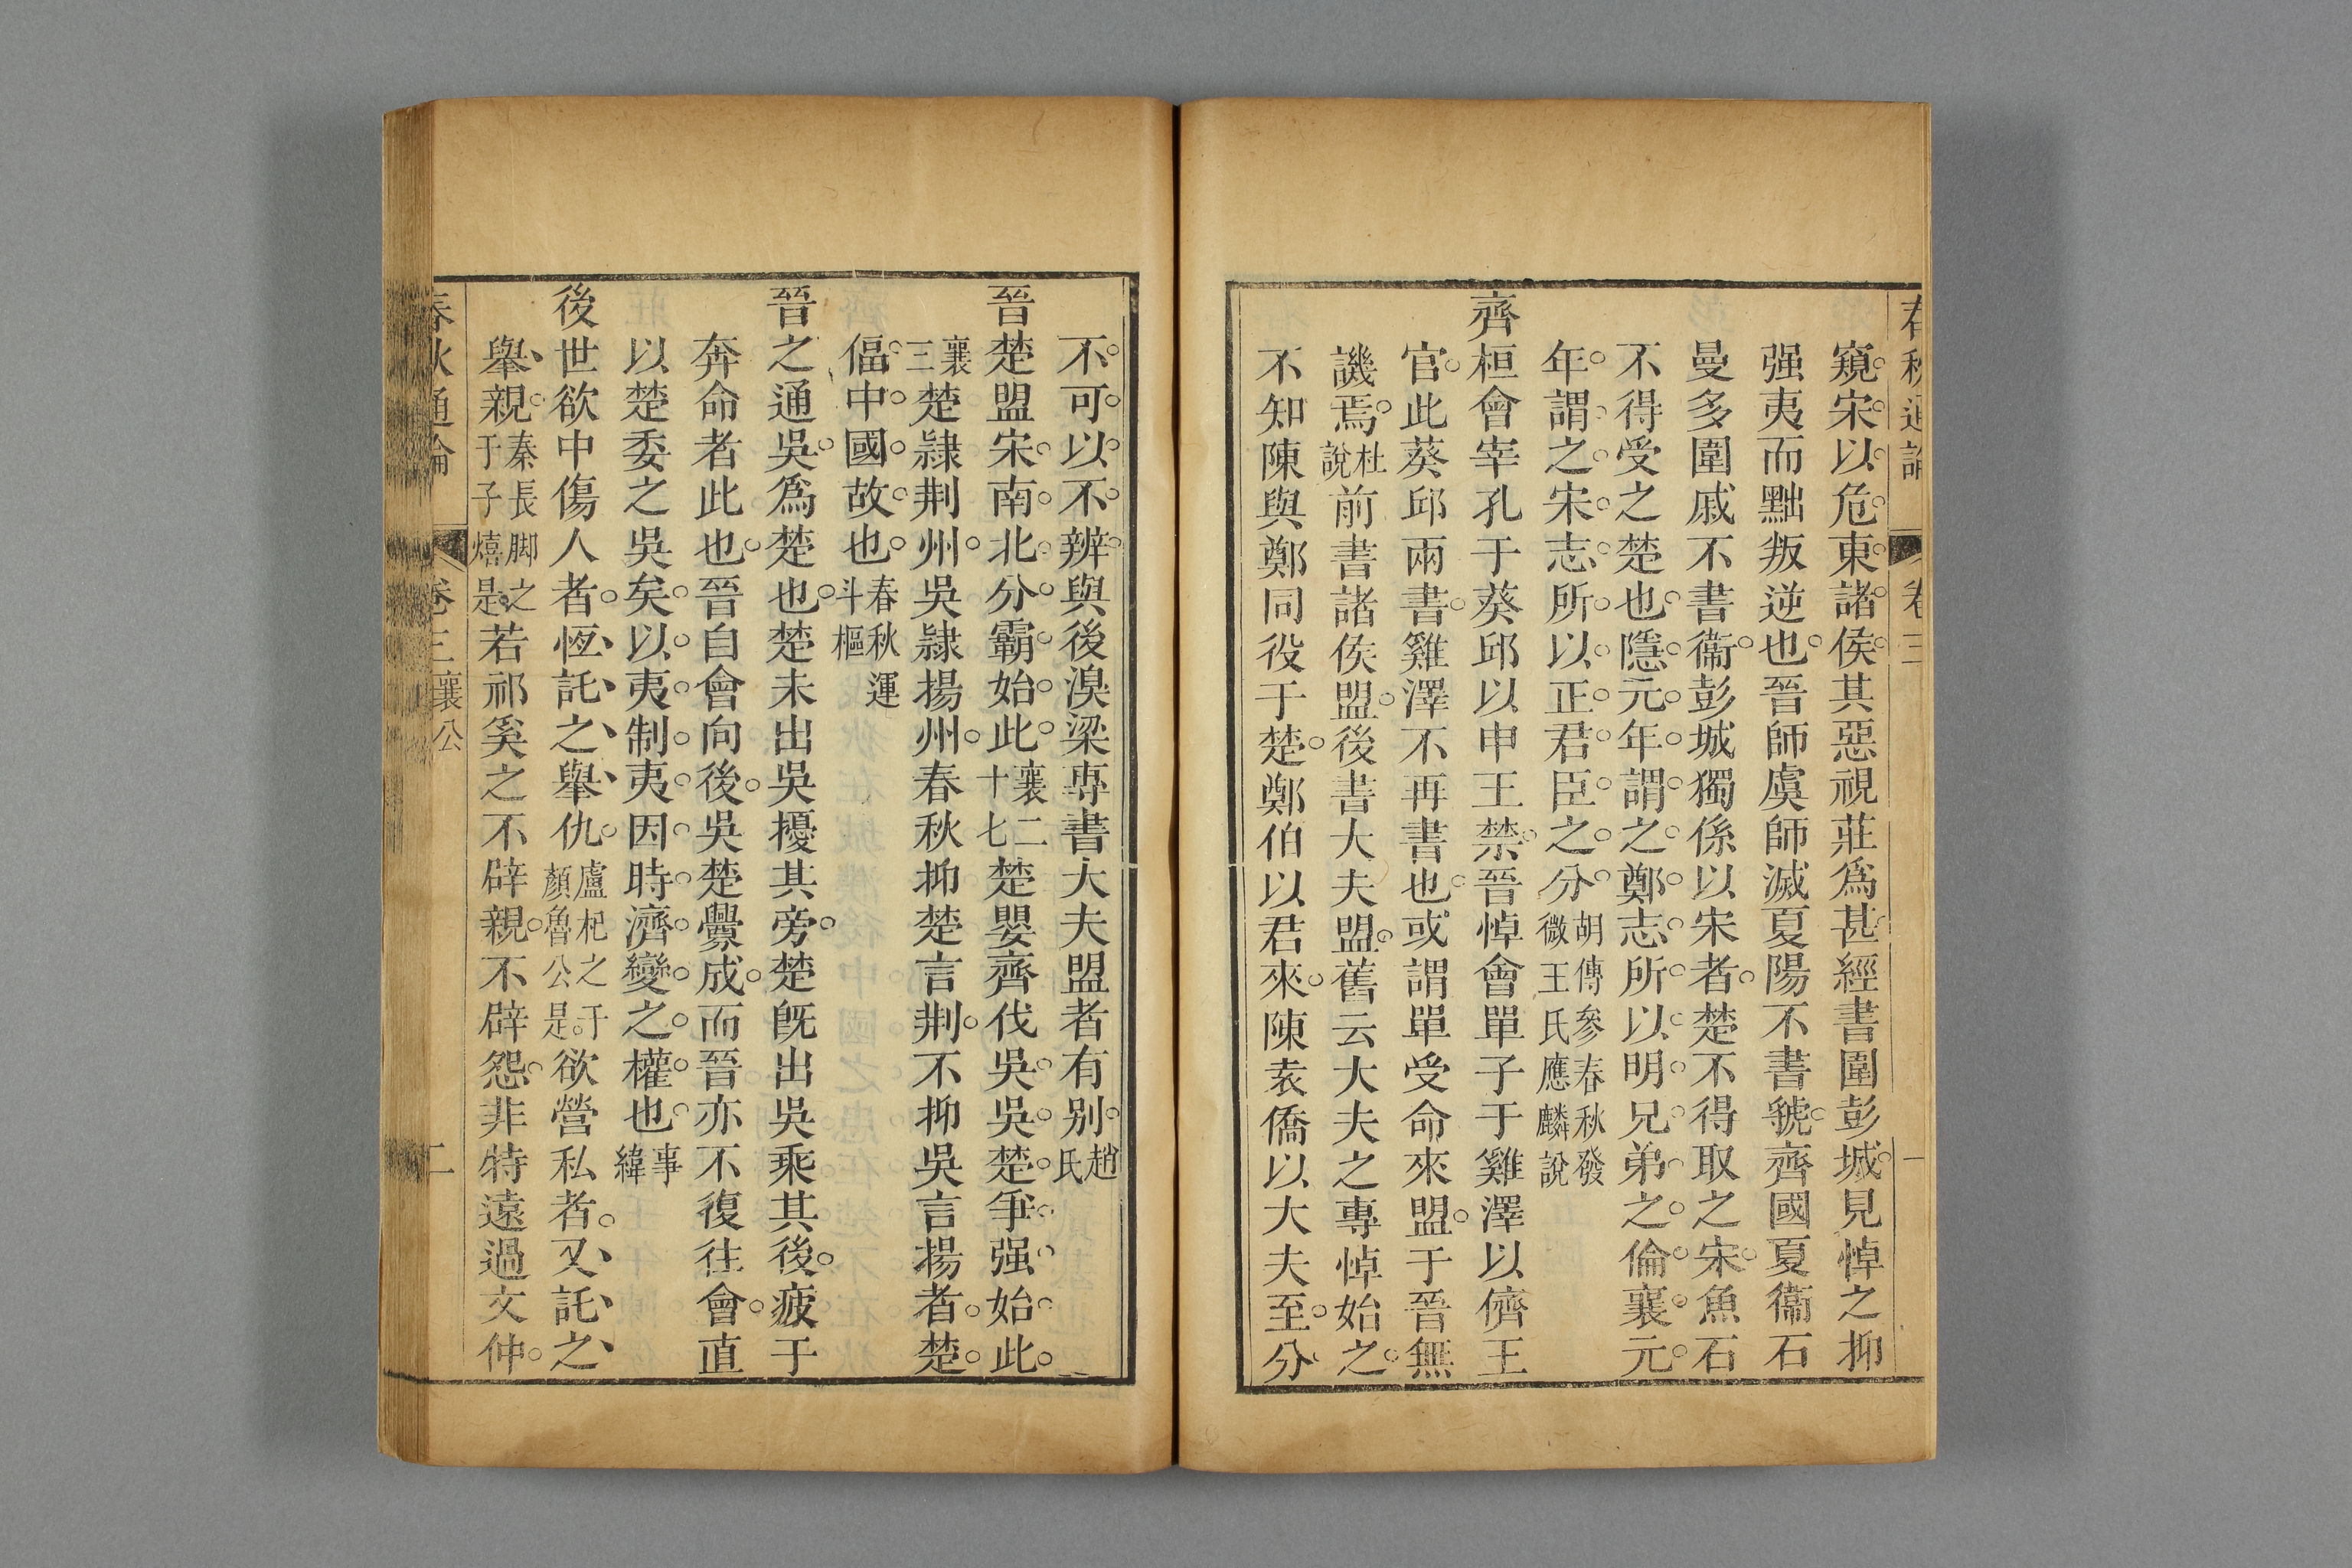 春秋通論 卷三 一
窺宋以危東諸侯其惡視莊爲甚經書圍彭城見悼之抑
强夷而黜叛逆也晉師虞師滅夏陽不書虢齊國夏衞石
曼多圍戚不書衞彭城獨係以宋者楚不得取之宋魚石
不得受之楚也隱元年謂之鄭志所以明兄弟之倫襄元
年謂之宋志所以正君臣之分胡傳參春秋發微王氏應麟說
齊桓會宰孔于葵邱以申王禁晉悼會單子于雞澤以儕王
官此葵邱兩書雞澤不再書也或謂單受命來盟于晉無
譏焉杜說前書諸侯盟後書大夫盟舊云大夫之專悼始之
不知陳與鄭同役于楚鄭伯以君來陳袁僑以大夫至分
不可以不辨與後湨梁專書大夫盟者有别趙氏
晉楚盟宋南北分霸始此襄二十七楚嬰齊伐吳吳楚争强始此
襄三楚隷荆州吳隷揚州春秋抑楚言荆不抑吳言揚者楚
偪中國故也春秋運斗樞
晉之通吳爲楚也楚未出吳擾其旁楚既出吳乘其後疲于
奔命者此也晉自會向後吳楚釁成而晉亦不復往會直
以楚委之吳矣以夷制夷因時濟變之權也事緯
後世欲中傷人者恆託之舉仇盧杞之于顏魯公是欲營私者又託之
舉親秦長脚之于子熺是若祁奚之不辟親不辟怨非特遠過文仲
春秋通論 卷三襄公 二